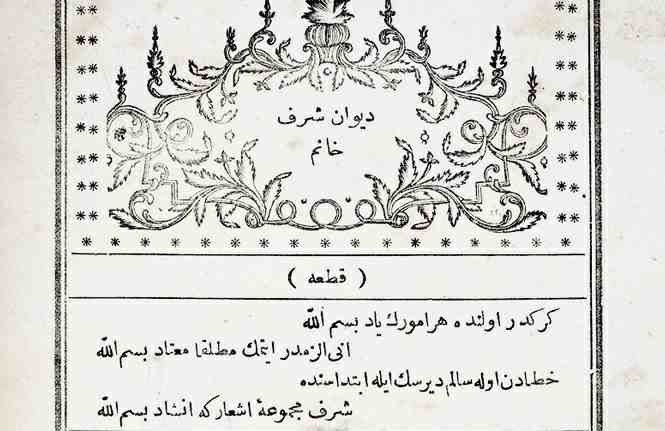 ديوان شرف
خانم
( قطعه )
كركدر اولنده هر امورك ياد بسم الله
انى الزمدر ايتمك مطلقا معتاد بسم الله
خطادن اوله سالم ديرسك ايله ابتداسنده
شرف مجموعۀ اشعاركه انشاد بسم الله